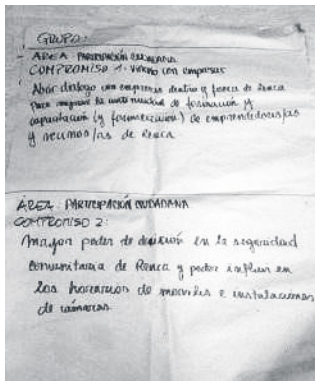 GRUPO:
- AREA: PARTICIPACIÓN CIUDADANA
COMPROMISO 1: Vínculo con empresas
Abrir dialogo con empresas dentro y fuera de Renca
para mejorar la continuidad de formación y
capacitación (y formalización) de emprendedores/as
y vecinos/as de Renca
ÁREA: PARTICIPACIÓN CIUDADANA
COMPROMISO 2:
Mayor poder de decisión en la seguridad
comunitaria de Renca y poder influir en
los horarios de moviles e instalaciones
de cámaras